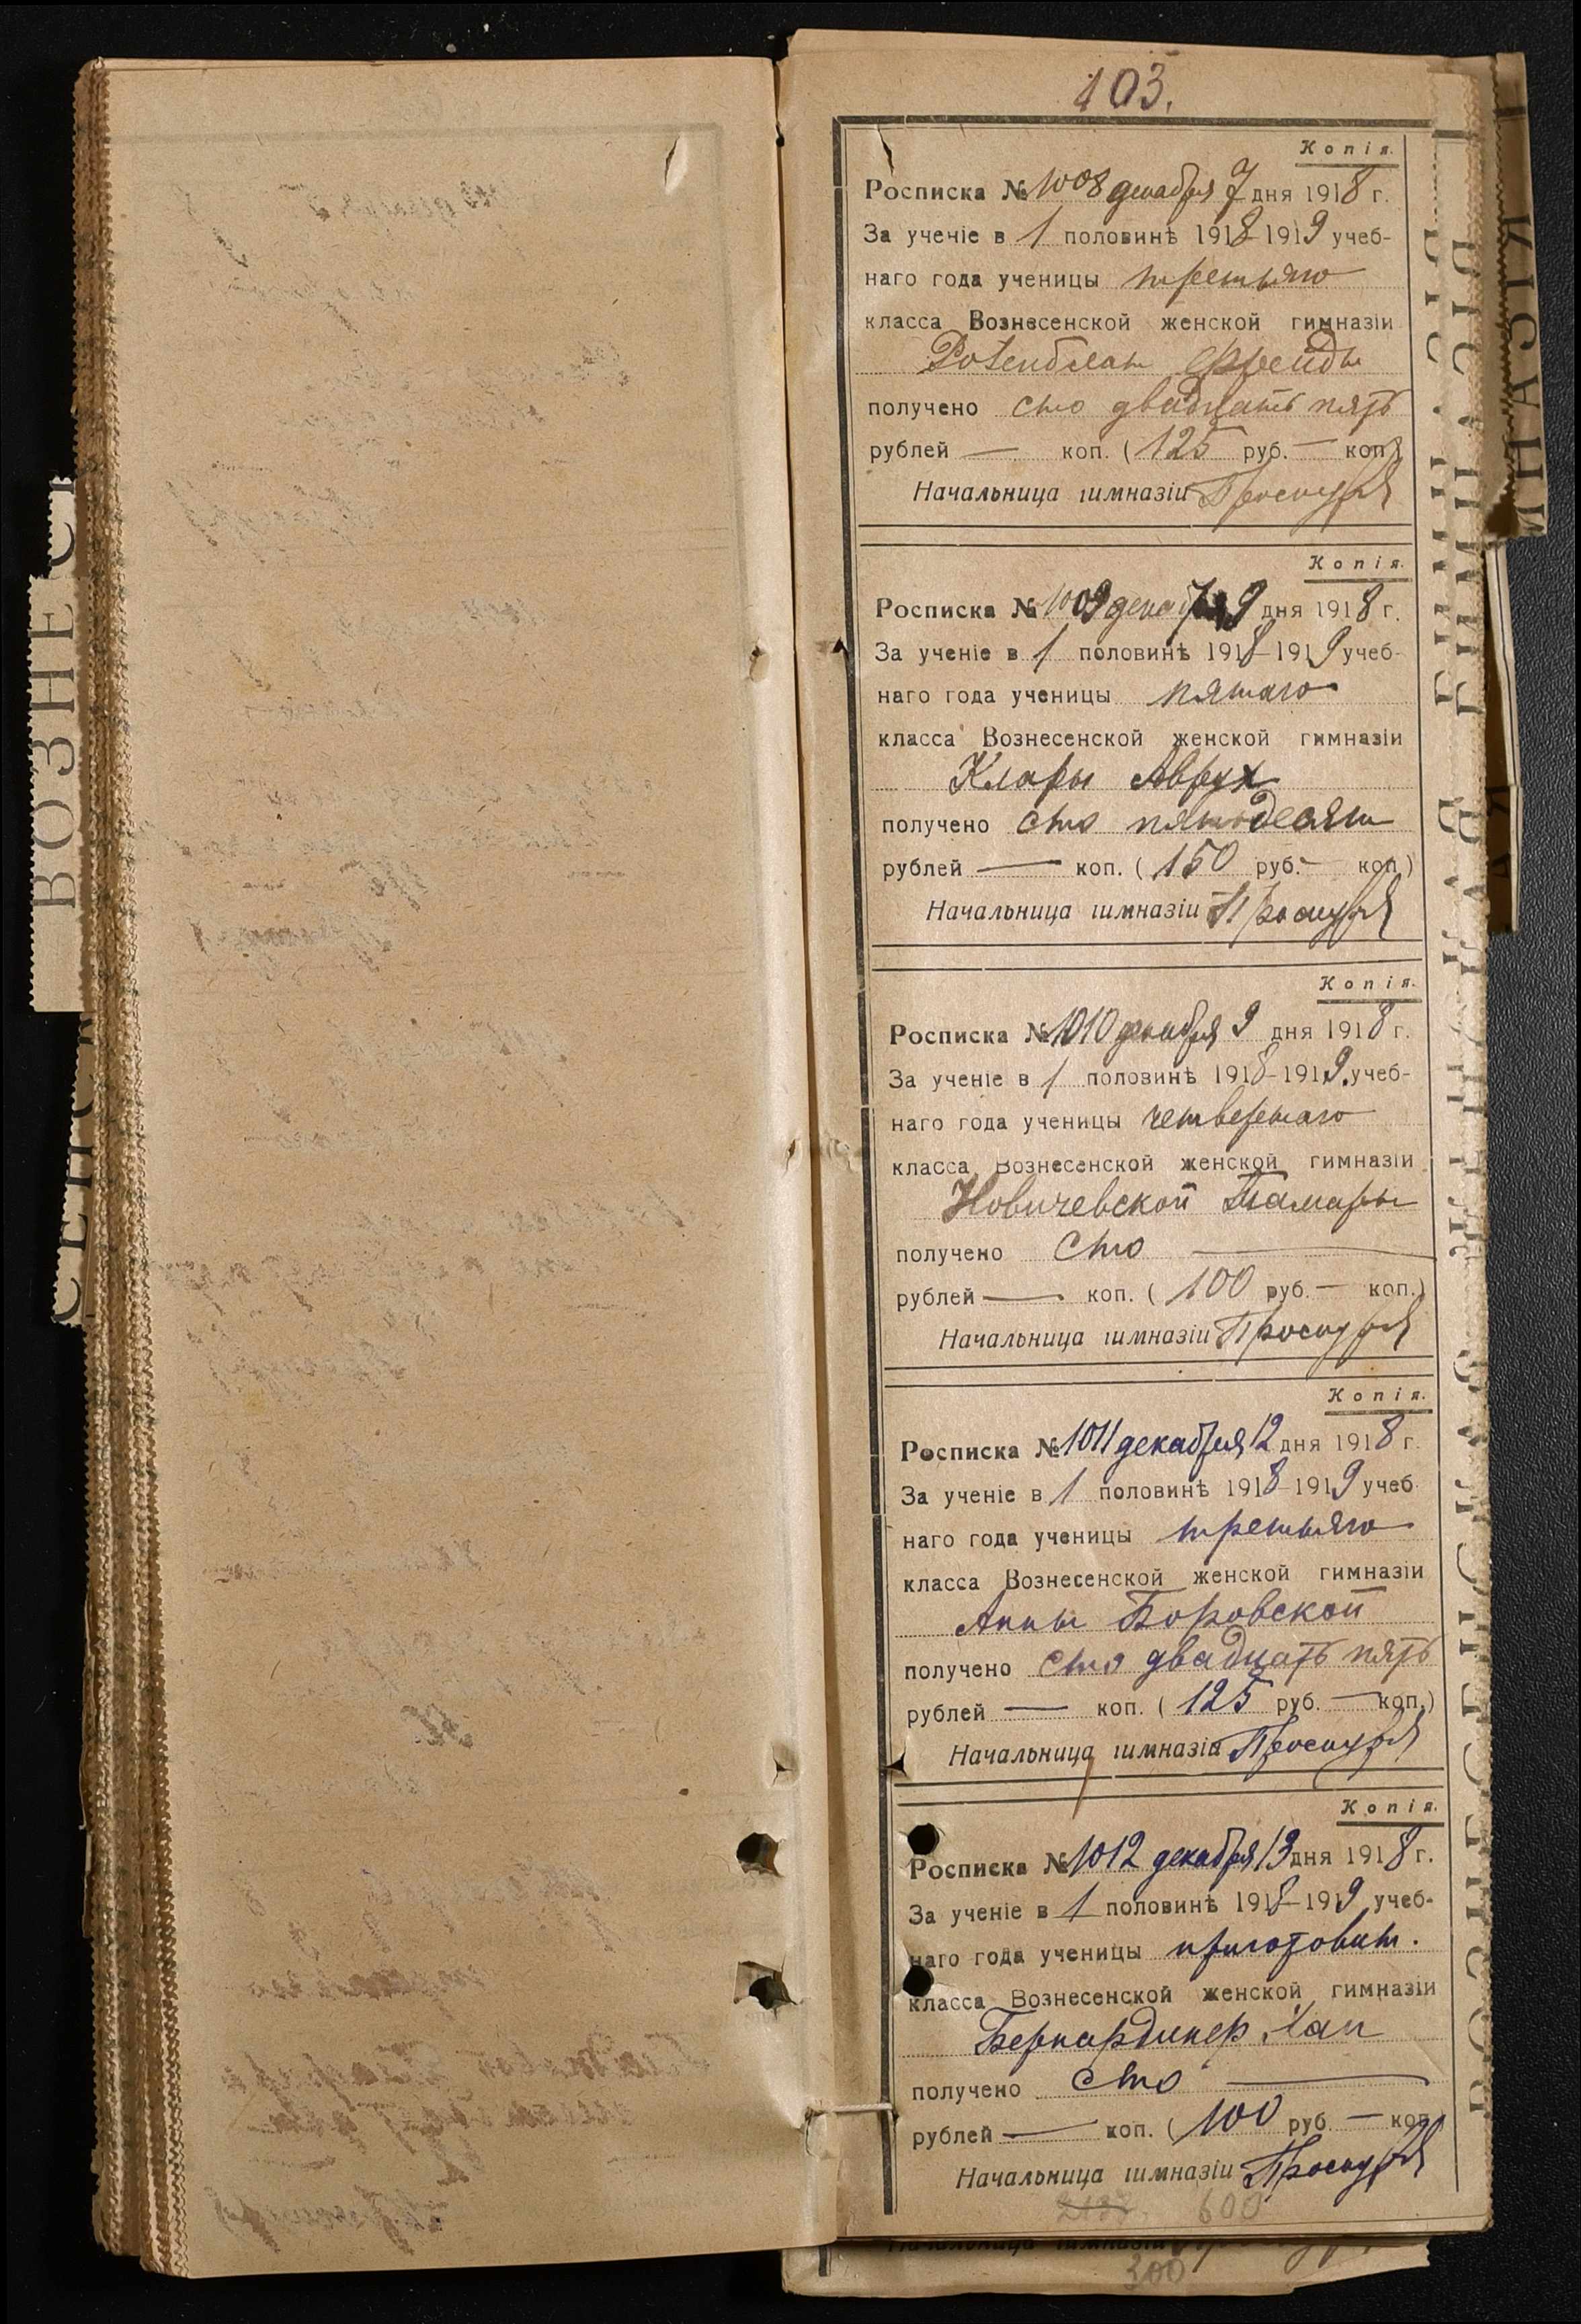 103.
Копія.
Росписка № 1008 декабря 7 дня 1918 г.
За ученіе в 1 половинѣ 1918-1919 учеб-
наго года ученицы третьяго
класса Вознесенской женской гимназіи
Розенблат Фрейды
получено сто двадцать пять
рублей — коп. (125 руб. — коп.)
Начальница гимназіи
Копія.
Росписка № 1009 декабря 9 дня 1918 г.
За ученіе в 1 половинѣ 1918-1919 учеб-
наго года ученицы пятаго
класса Вознесенской женской гимназіи
Клары Аврух
получено сто пятьдесят
рублей — коп. (150 руб. — коп.)
Начальница гимназіи
Копія.
Росписка № 1010 декабря 9 дня 1918 г.
За ученіе в 1 половинѣ 1918-1919 учеб-
наго года ученицы четвертаго
класса Вознесенской женской гимназіи
Новичевской Тамары
получено сто —
рублей — коп. (100 руб. — коп.)
Начальница гимназіи
Копія.
Росписка № 1011 декабря 12 дня 1918 г.
За ученіе в 1 половинѣ 1918-1919 учеб-
наго года ученицы третьяго
класса Вознесенской женской гимназіи
Анны Боровской
получено сто двадцать пять
рублей — коп. (125 руб. — коп.)
Начальница гимназіи
Копія.
Росписка № 1012 декабря 13 дня 1918 г.
За ученіе в 1 половинѣ 1918-1919 учеб-
наго года ученицы приготовит.
класса Вознесенской женской гимназіи
Бернардинер Хаи
получено сто —
рублей — коп. (100 руб. — коп.)
Начальница гимназіи
600
Начальница гимназіи
300
ВОЗНЕС